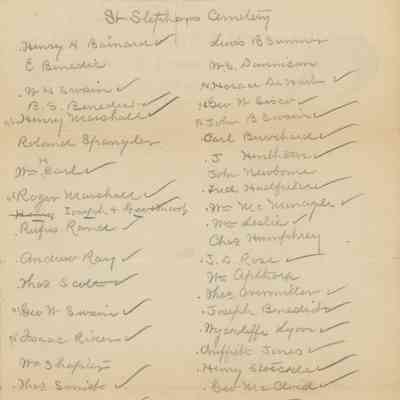 St Stephens Cemetery
Henry H Bainard
E Benedict
W H Swain
B. S. Benedict
Henry Marshall
Roland Spangler
Wm H Earl
Roger Marshall
Henry Joseph &
Rufus Rance
Andrew Ray
Thos Scott
Geo W Swain
Isaac River
Wm Shapter
Thos Smith
Lewis B Sumner
W. S. Dunnican
Horace
Geo W Sisco
John B Swain
Carl Burchard
J Henthorn
John Newborn
Fred
Wm Mc Monagle
Wm Leslie
Chas Humphrey
J. D. Rose
Wm Apthorp
Thos Overmitter
Joseph Benedict
Wycerliffe Lyon
Griffith Jones
Henry Stockdale
Geo McCloud